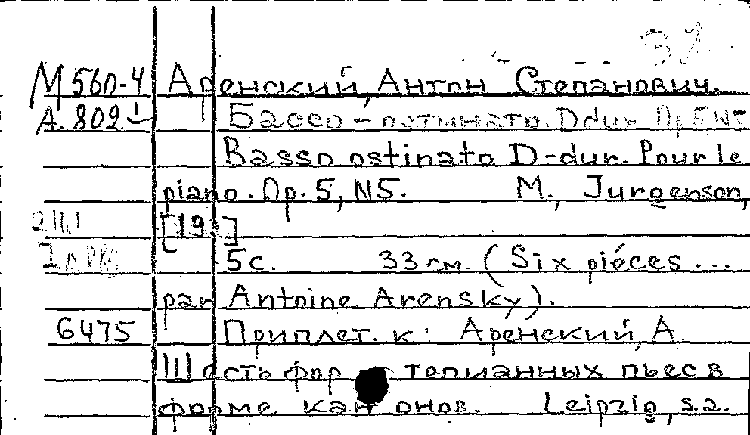 37
М 560-4 Аренский, Антон Степанович.
А. 802 Бассо-остинато. D dur. Op. 5 №5
Basso ostinato D-dur. Pour le
piano. Op. 5, №5. М., Jurgenson,
[19 ]
5с. 33 см. (Six piéces ...
par Antoine Arensky).
6475 Приплет. к: Аренский, А
Шесть фортепианных пьес в
форме канонов. Leipzig, s.a.